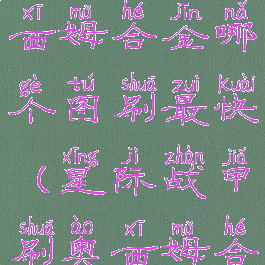 xī mǔ hé jīn nǎ
西姆合金哪
gè tú shuā zuì kuài
个图刷最快
xīng jì zhàn jiǎ
(星际战甲
shuā ào xī mǔ hé
刷奥西姆合